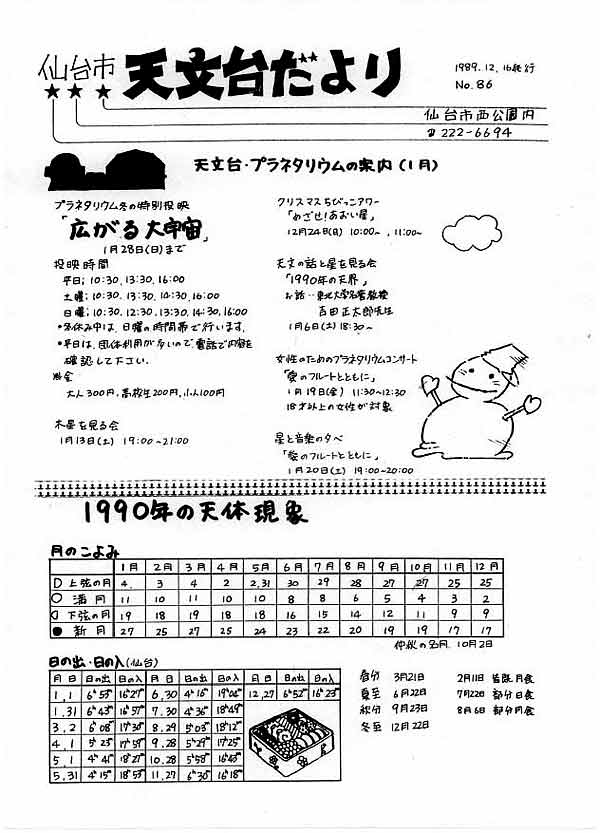 仙台市 天文台だより
1989.12.16発行
No.86
仙台市西公園内
☎222-6694
天文台・プラネタリウムの案内(1月)
プラネタリウム冬の特別投映
「広がる大宇宙」
1月28日(日)まで
投映時間
平日; 10:30, 13:30, 16:00
土曜; 10:30, 13:30, 14:30, 16:00
日曜; 10:30, 12:30, 13:30, 14:30, 16:00
・冬休み中は、日曜の時間帯で行います.
・平日は、団体利用が多いので、電話で内容を
確認して下さい.
料金
大人300円, 高校生200円, 小人100円
木星を見る会
1月13日(土) 19:00~21:00
クリスマスちびっこアワー
「めざせ!あおい星」
12月24日(日) 10:00~, 11:00~
天文の話と星を見る会
「1990年の天界」
お話‥東北大学名誉教授
吉田正太郎先生
1月6日(土) 18:30~
女性のためのプラネタリウムコンサート
「愛のフルートとともに」
1月19日(金) 11:30~12:30
18才以上の女性が対象
星と音楽の夕べ
「愛のフルートとともに」
1月20日(土) 19:00~20:00
1990年の天体現象
月のこよみ
1月 2月 3月 4月 5月 6月 7月 8月 9月 10月 11月 12月
上弦の月 4 3 4 2 2,31 30 29 28 27 27 25 25
満月 11 10 11 10 10 8 8 6 5 4 3 2
下弦の月 19 18 19 18 18 16 15 14 12 11 9 9
新月 27 25 27 25 24 23 22 20 19 19 17 17
仲秋の名月 10月2日
日の出・日の入(仙台)
月日 日の出 日の入 月日 日の出 日の入 月日 日の出 日の入
1.1 6h53m 16h27m 6.30 4h16m 19h04m 12.27 6h52m 16h23m
1.31 6h43m 16h57m 7.30 4h36m 18h49m
3.2 6h08m 17h30m 8.29 5h03m 18h12m
4.1 5h23m 17h59m 9.28 5h29m 17h25m
5.1 4h41m 18h27m 10.28 5h58m 16h43m
5.31 4h15m 18h53m 11.27 6h30m 16h18m
春分 3月21日
夏至 6月22日
秋分 9月23日
冬至 12月22日
2月11日 皆既月食
7月22日 部分日食
8月6日 部分月食